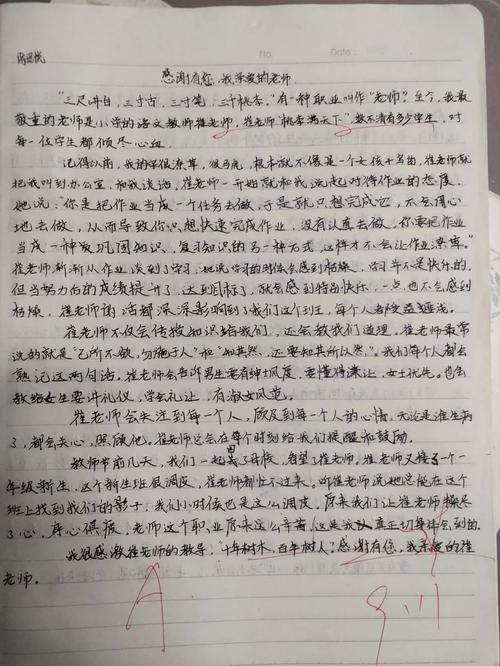 No.
Date:
感谢有您，我亲爱的老师
"三尺讲台，三寸舌，三寸笔，三千桃李。"有一种职业叫作"老师"。至今，我最
敬重的老师是小学的语文教师崔老师，崔老师"桃李满天下"，数不清有多少学生，对
每一位学生都倾尽心血。
记得以前，我的字很潦草，根本就不像是一个女孩十写的，崔老师就
把我叫到办公室，和我谈话，崔老师一开始就和我说起对待作业的态度。
她说："你是把作业当成一个任务去做，于是就只想完成它，不会用心
地去做，从而导致你只想快速完成作业，没有认真去做，你要把作业
当成一种取巩固知识、复习知识的另一种方式，这样才不会让作业潦草。"
崔老师渐渐从作业谈到了学习，她说学习的时候会感到枯燥，学习并不是快乐的，
但当努力向的成绩提升了，达到目标了，就会感到特别快乐，一点也不会感到
枯燥，崔老师的话都深深影响到了我们这个班，每个人都受益匪浅。
崔老师不仅会传授知识给我们，还会教我们道理，崔老师最常
说的就是"己所不欲，勿施于人"和"知其然，还要知其所以然。"。我们每个人都会
熟记这两句话。崔老师会告诉男生要有绅士风度，要懂得谦让，女士优先。也会
教给女生要讲礼仪，学会礼让，有淑女风范。
崔老师会关注到每一个人，顾及到每一个人的心情，无论是谁生病
了，都会关心，照顾他。崔老师还会在每个时刻给我们提醒和鼓励。
教师节前几天，我们一起回了母校，看望了崔老师。崔老师又接了一个一
年级新生，这个新生班很调皮，崔老师都忙不过来。听崔老师说她总能在这个
班上找到我们的影子，我们小时候也是这么调皮，原来我们让崔老师操尽
了心，身心俱疲，老师这个职业原来这么辛苦，这是我认真切身体会到的。
我很感激崔老师的教导，"十年树木，百年树人"，感谢有您，我亲爱的崔
老师。
A